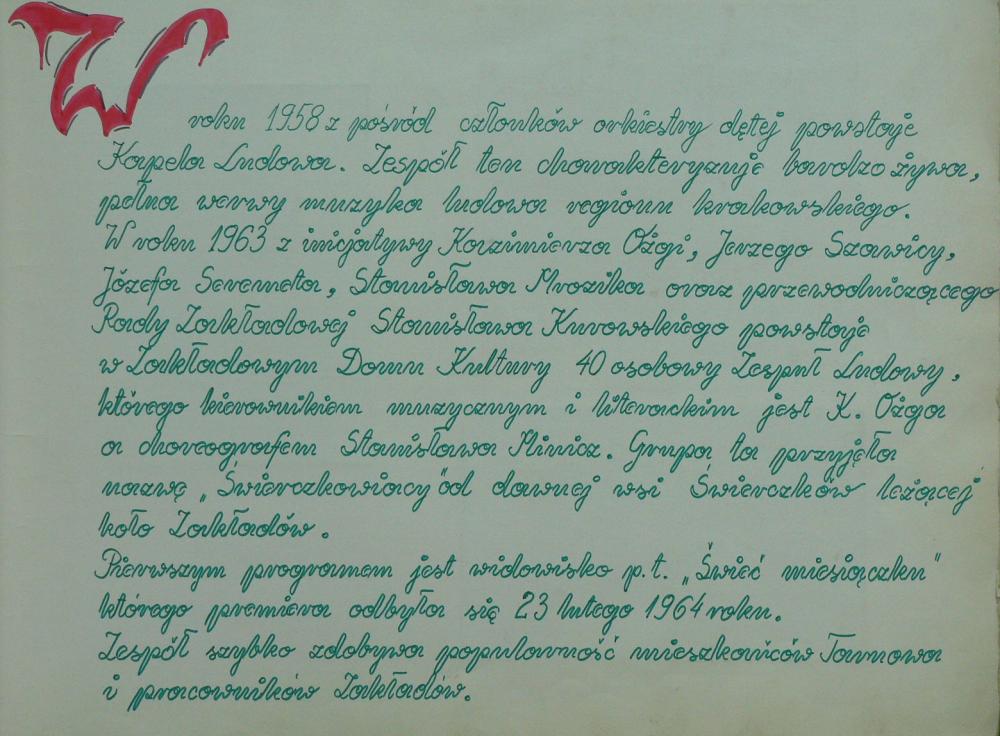 W roku 1958 z pośród członków orkiestry dętej powstaje
Kapela Ludowa. Zespół ten charakteryzuje bardzo żywa,
pełna werwy muzyka ludowa regionu krakowskiego.
W roku 1963 z inicjatywy Kazimierza Ożgi, Jerzego Szawicy,
Józefa Seremeta, Stanisława Mrozika oraz przewodniczącego
Rady Zakładowej Stanisława Kurowskiego powstaje
w Zakładowym Domu Kultury 40 osobowy Zespuł Ludowy,
którego kierownikiem muzycznym i literackim jest K. Ożga
a choreografem Stanisława Plinicz. Grupa ta przyjęła
nazwę „Świerczkowiacy" od dawnej wsi Świerczków leżącej
koło Zakładów.
Pierwszym programem jest widowisko p.t. „Świeć miesiączku"
którego premiera odbyła się 23 lutego 1964 roku.
Zespół szybko zdobywa popularność mieszkańców Tarnowa
i pracowników Zakładów.